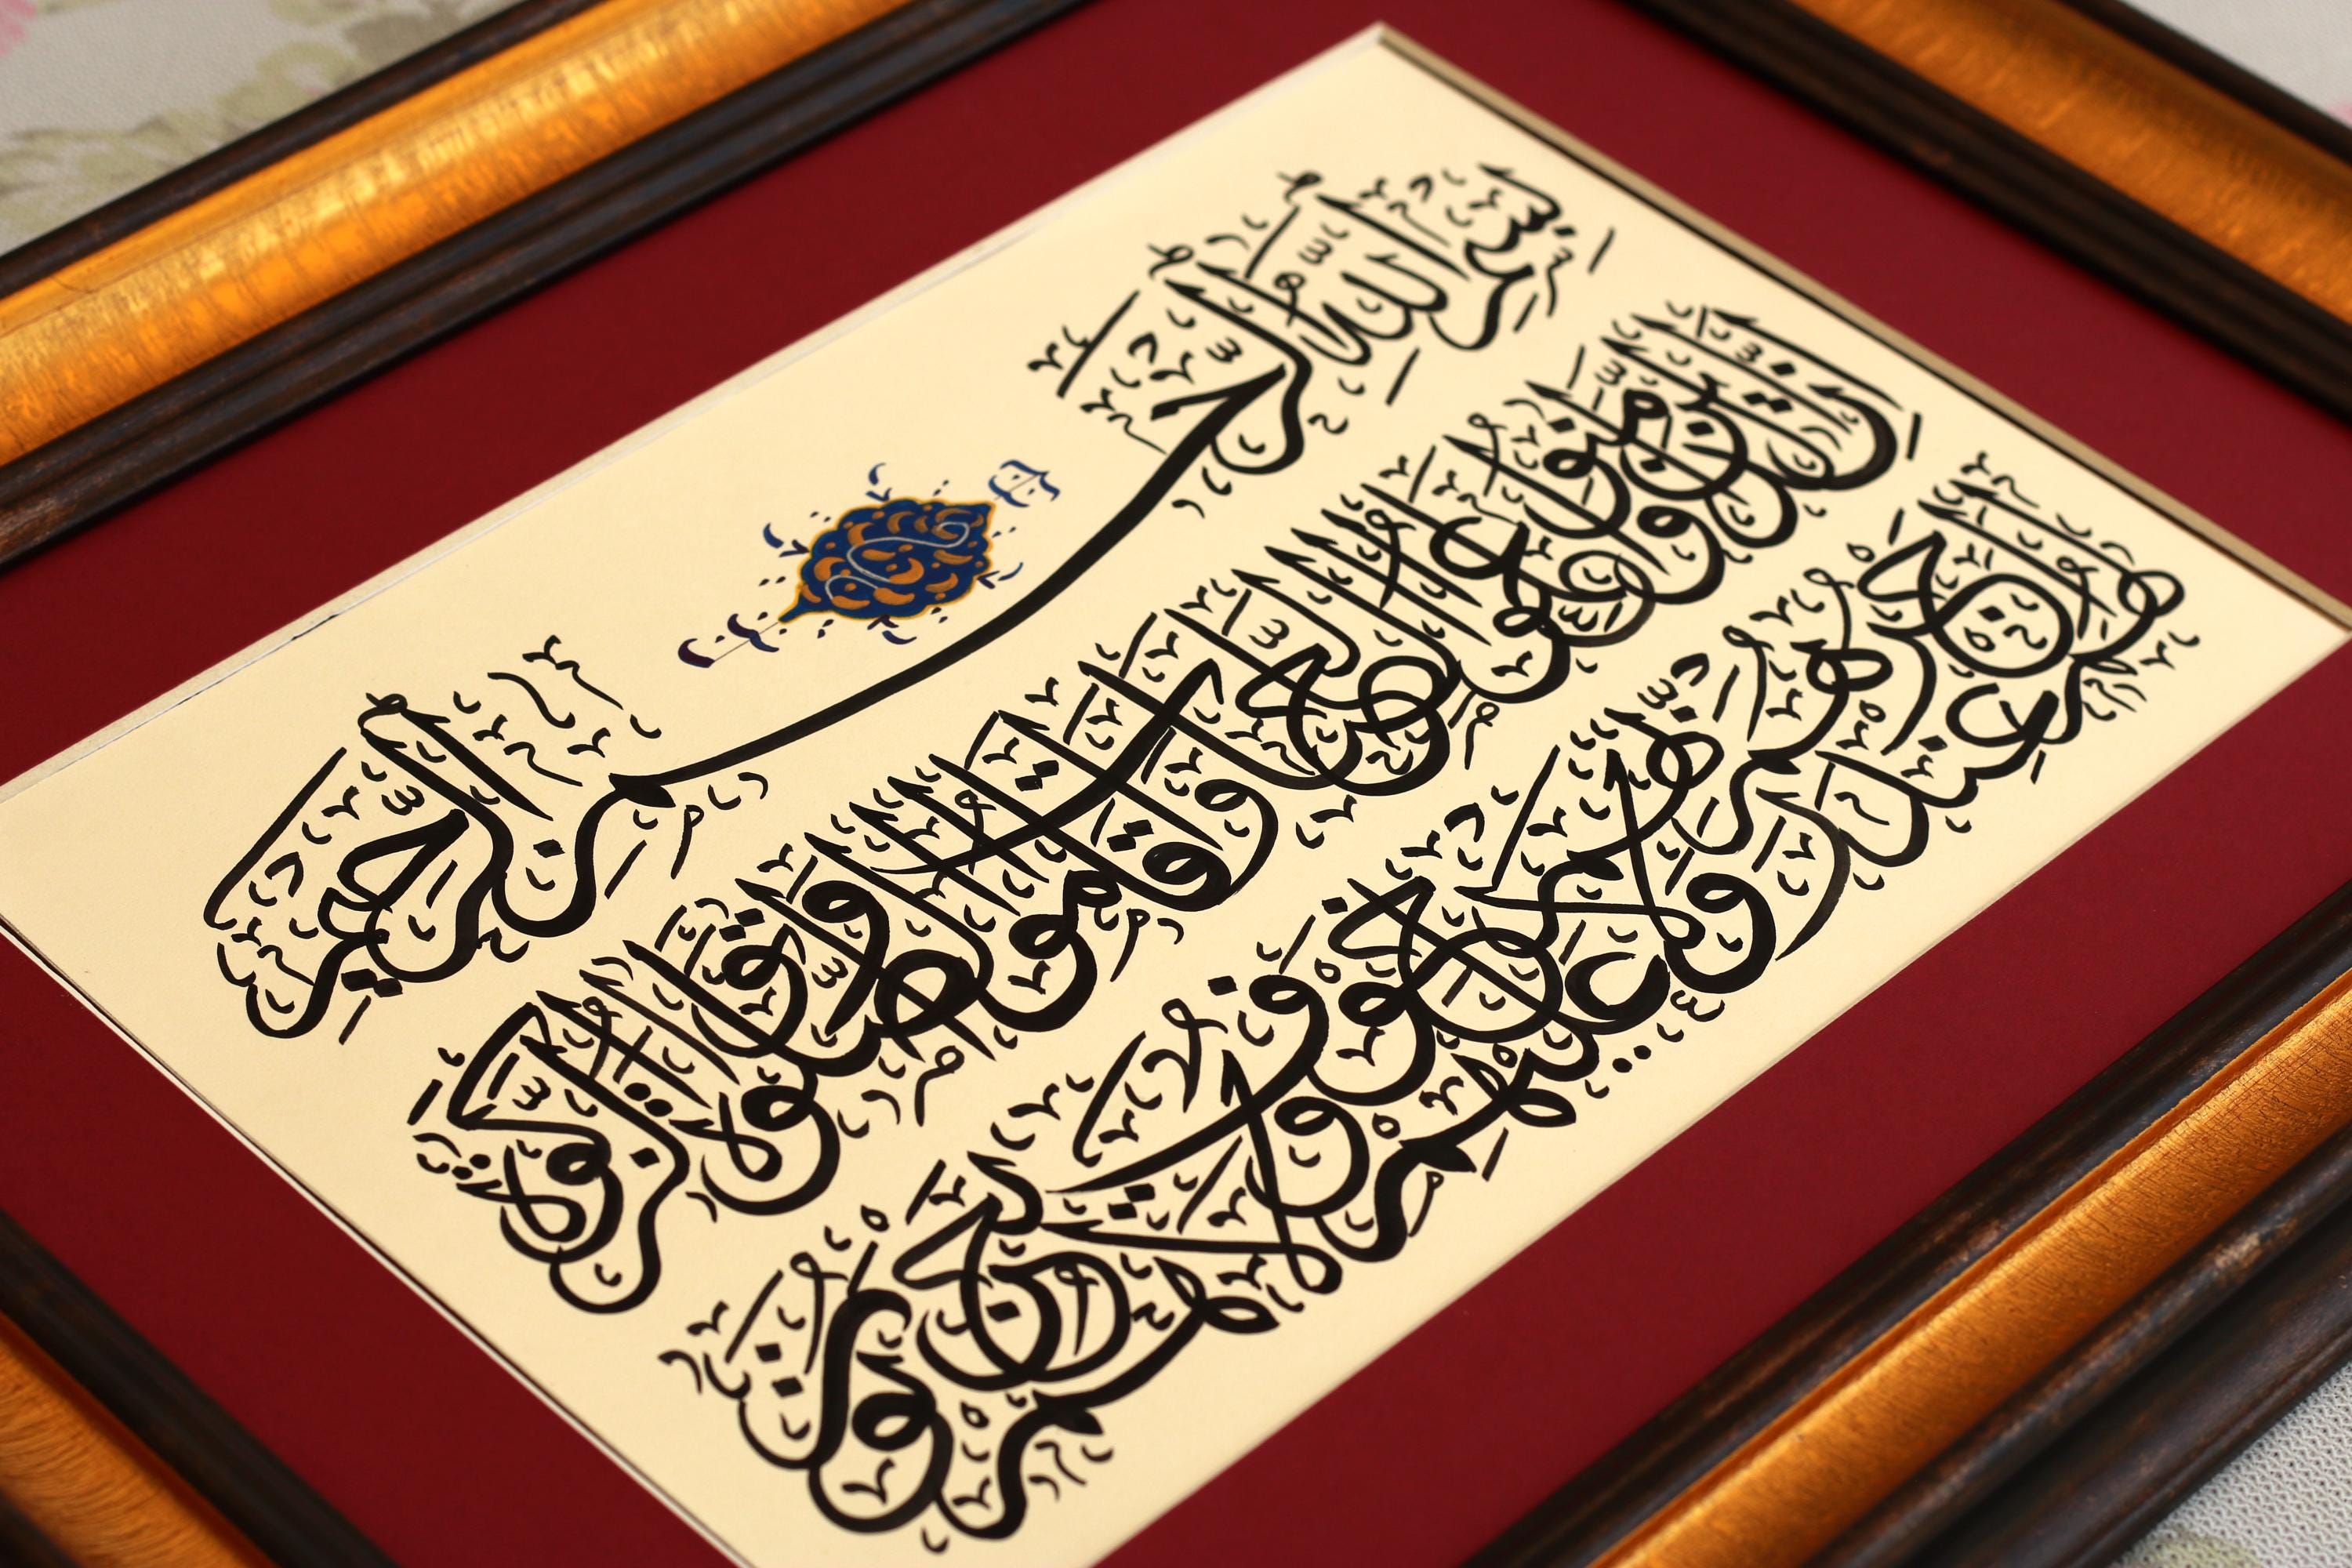 بسم الله الرحمن الرحيم
ان الذين امنوا وعملوا الصلحت واقاموا الصلوة واتوا الزكوة
لهم اجرهم عند ربهم ولا خوف عليهم ولا هم يحزنون